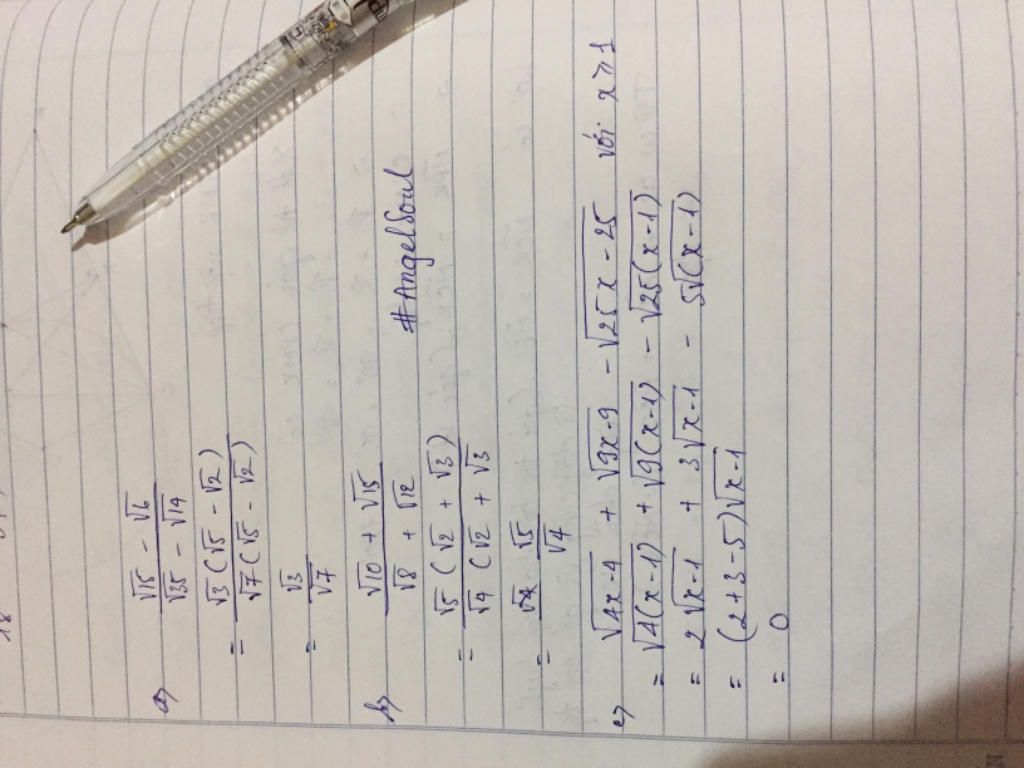 a) \frac{√15 - √6}{√35 - √14}
= \frac{√3(√5 - √2)}{√7(√5 - √2)}
= \frac{√3}{√7}
b) \frac{√10 + √15}{√8 + √12}
#AngelSoul
= \frac{√5(√2 + √3)}{√4(√2 + √3}
= \frac{√5}{√4}
c) √4x-4 + √9x-9 - √25x-25 với x≥1
= √4(x-1) + √9(x-1) - √25(x-1)
= 2√x-1 + 3√x-1 - 5√(x-1)
= (2+3-5)√x-1
= 0